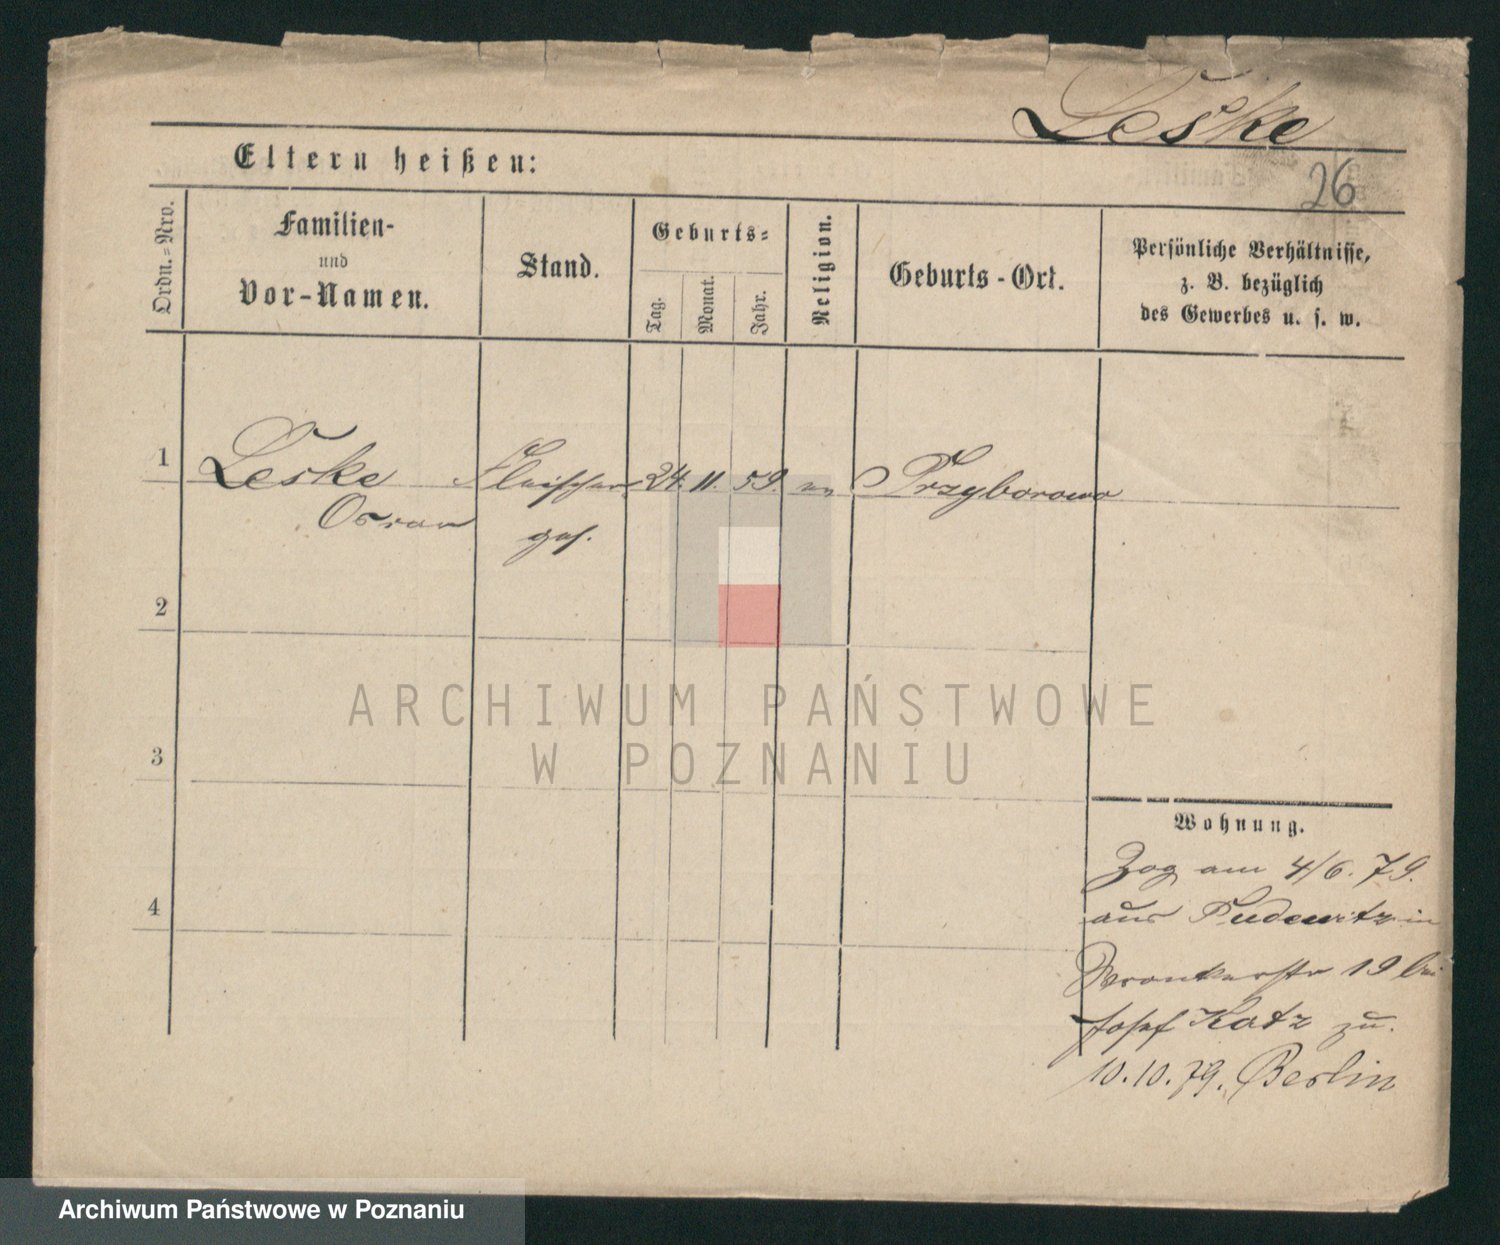 Leske
Eltern heißen:
26
Ordn.=Nro.
Familien-
und
Vor-Namen.
Stand.
Geburts=
Tag.
Monat.
Jahr.
Religion.
Geburts-Ort.
Persönliche Verhältnisse,
z. B. bezüglich
des Gewerbes u. s. w.
1
Leske Fleischer 24. 11. 59. Przyborowo
ges.
2
ARCHIWUM PAŃSTWOWE
W POZNANIU
3
Wohnung.
Zog am 4/6. 79.
aus Pudewitz in
4
Wronkerstr 19 bei
Josef Katz zu.
10.10.79. Berlin
Archiwum Państwowe w Poznaniu